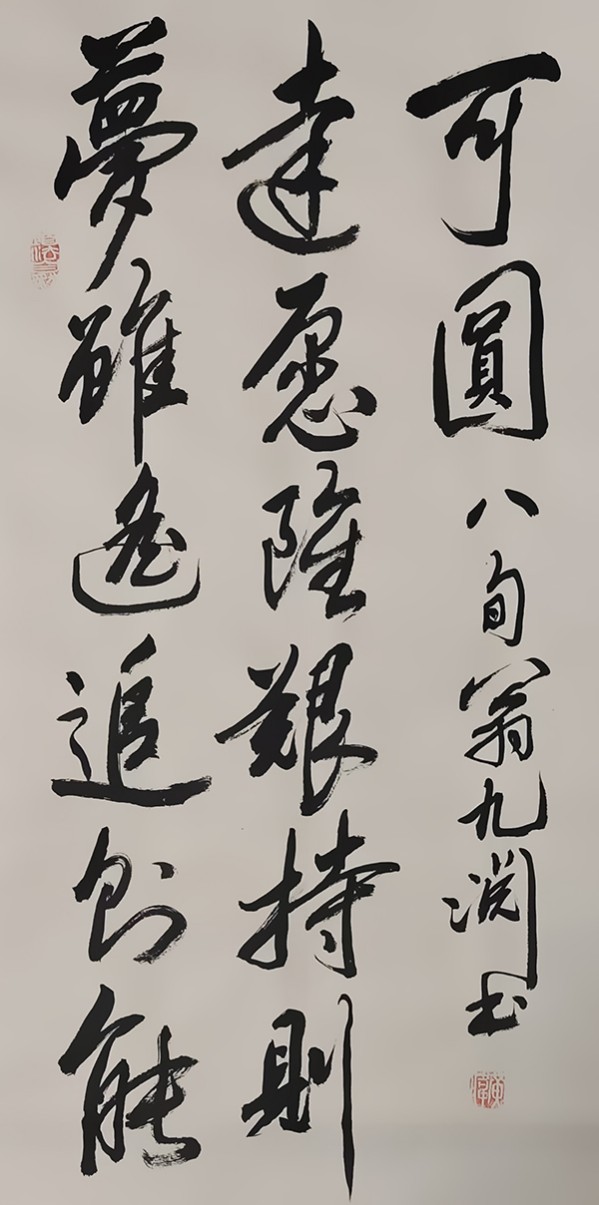 夢雖遙追則能
達愿雖艱持則
可圓 八旬翁九渊书